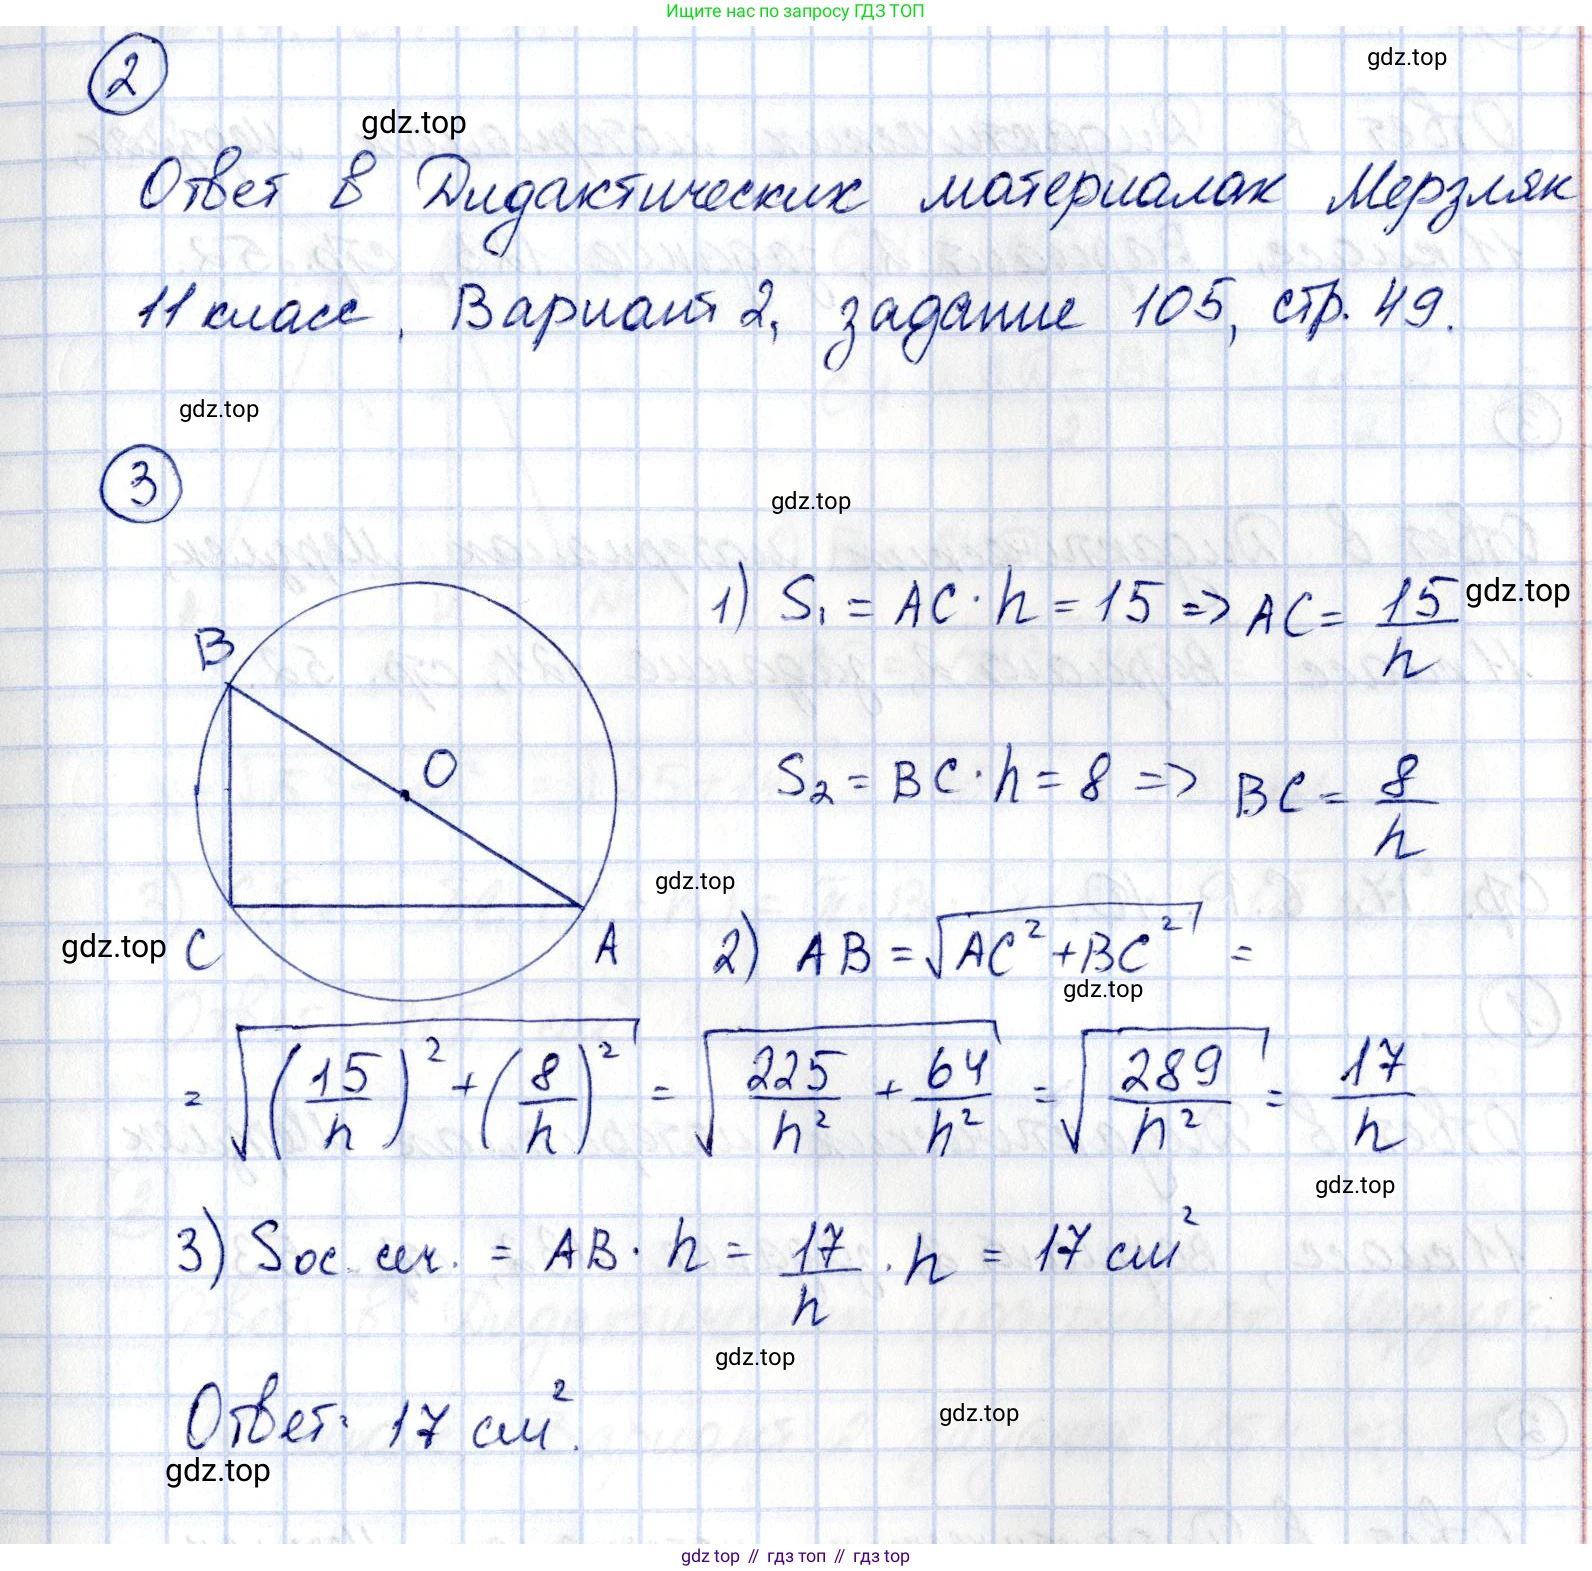 Ищите нас по запросу ГДЗ ТОП
gdz.top
2
gdz.top
Ответ в Дидактических материалах Мерзляк
11 класс, Вариант 2, задание 105, стр. 49.
gdz.top
3
gdz.top
1) S₁ = AC · h = 15 => AC = 15/h
gdz.top
B
S₂ = BC · h = 8 => BC = 8/h
O
gdz.top
gdz.top
C
A
2) AB = √(AC² + BC²) =
gdz.top
= √((15/h)² + (8/h)²) = √(225/h² + 64/h²) = √(289/h²) = 17/h
gdz.top
3) Sос. сеч. = AB · h = 17/h · h = 17 см²
gdz.top
Ответ: 17 см².
gdz.top
gdz.top
gdz top // гдз топ // гдз top